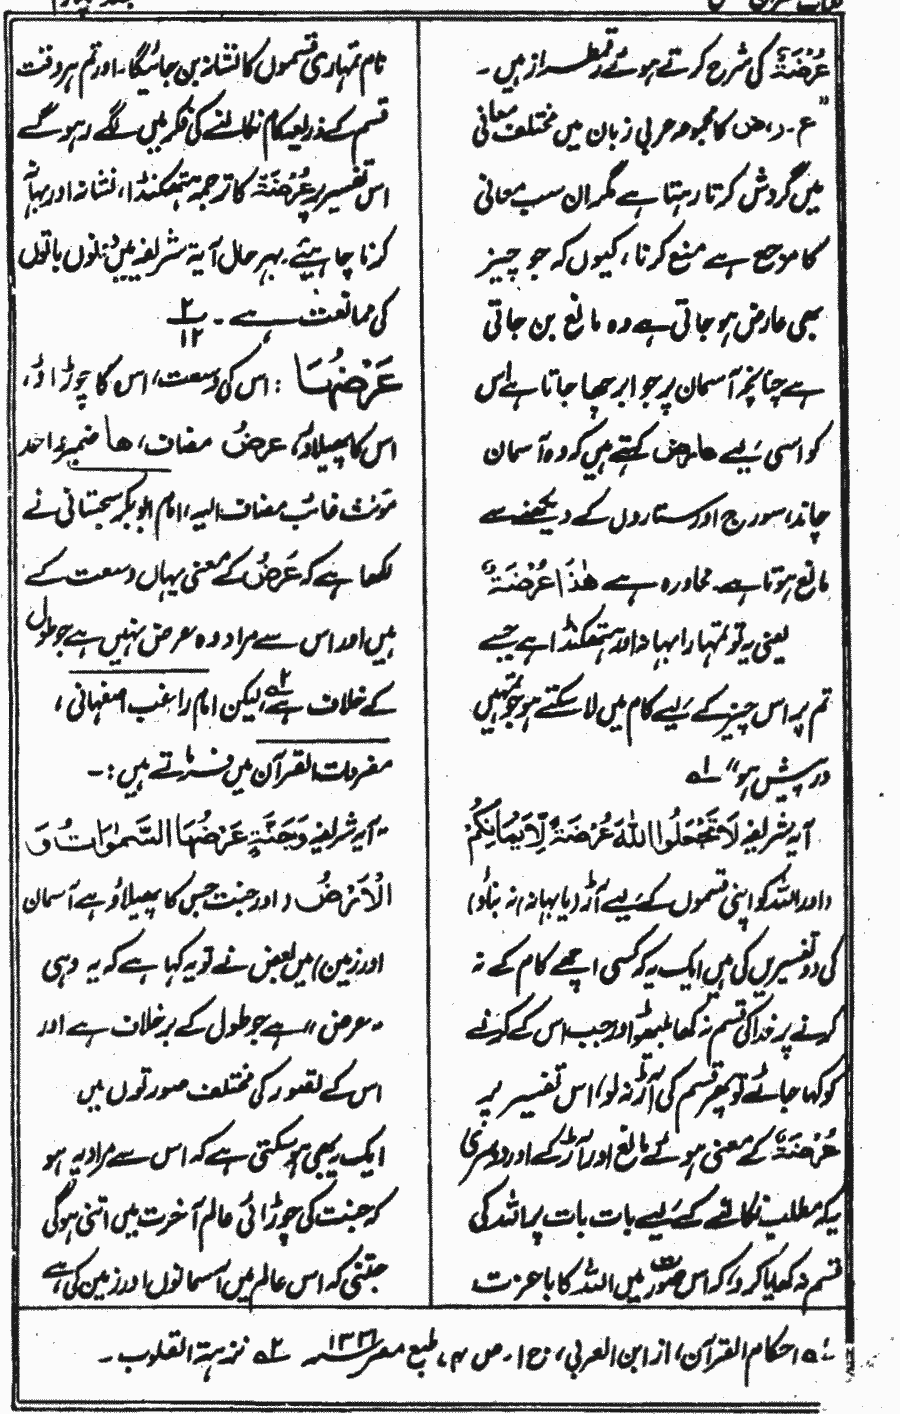 عُرْضَةً کی شرح کرتے ہوئے رقمطراز ہیں۔
"ع۔ ر، ض کا مجموعہ عربی زبان میں مختلف معانی
میں گردش کرتا رہتا ہے مگر ان سب معانی
کا مرجع ہے منع کرنا، کیوں کہ جو چیز
بھی عارض ہو جاتی ہے وہ مانع بن جاتی
ہے چنانچہ آسمان پر جو ابر چھا جاتا ہے اس
کو اسی لیے عارض کہتے ہیں کہ وہ آسمان
چاند، سورج اور ستاروں کے دیکھنے سے
مانع ہوتا ہے۔ محاورہ ہے هٰذَا عُرْضَةٌ
یعنی یہ تو تمہارا بہانہ اور ہتھکنڈا ہے جسے
تم ہر اس چیز کے لیے کام میں لا سکتے ہو جو تمہیں
در پیش ہو" لہ
آیہ شریفہ لَا تَجْعَلُوا اللّٰهَ عُرْضَةً لِّاَيْمَانِكُمْ
(اور اللہ کو اپنی قسموں کے لیے آڑ (یا بہانہ) نہ بناؤ)
کی دو تفسیریں کی ہیں ایک یہ کہ کسی اچھے کام کے نہ
کرنے پر خدا کی قسم نہ کھا بیٹھو اور جب اس کے کرنے
کو کہا جائے تو پھر قسم کی آڑ نہ لو، اس تفسیر پر
عُرْضَةً کے معنی ہوئے مانع اور آڑ کے اور دوسری
یہ کہ مطلب نکالنے کے لیے بات بات پر اللہ کی
قسم نہ کھایا کرو، کہ اس صورت میں اللہ کا باعزت
نام تمہاری قسموں کا نشانہ بن جائیگا۔ اور تم ہر وقت
قسم کے ذریعہ کام نکالنے کی فکر میں لگے رہو گے
اس تفسیر پر عُرْضَةً کا ترجمہ ہتھکنڈا، نشانہ اور بہانہ
کرنا چاہیئے۔ بہر حال آیۃ شریفہ میں دونوں باتوں
کی ممانعت ہے۔ ۲/۱۲
عَرْضُهَا : اس کی وسعت، اس کا چوڑاؤ،
اس کا پھیلاؤ، عرضُ مضاف، ھا ضمیر واحد
مؤنث غائب مضاف الیہ، امام ابوبکر سجستانی نے
لکھا ہے کہ عَرْضُ کے معنی یہاں وسعت کے
ہیں اور اس سے مراد وہ عرض نہیں ہے جو طول
کے خلاف ہے ۲ہ لیکن امام راغب اصفہانی،
مفردات القرآن میں فرماتے ہیں :۔
" آیہ شریفہ وَجَنَّةٍ عَرْضُهَا السَّمٰوَاتُ وَ
الْاَرْضُ (اور جنت جس کا پھیلاؤ ہے آسمان
اور زمین) میں بعض نے تو یہ کہا ہے کہ یہ وہی
"عرض" ہے جو طول کے برخلاف ہے اور
اس کے تصور کی مختلف صورتوں میں
ایک یہ بھی ہو سکتی ہے کہ اس سے مراد یہ ہو
کہ جنت کی چوڑائی عالم آخرت میں اتنی ہوگی
جتنی کہ اس عالم میں آسمانوں اور زمین کی ہے
لہ احکام القرآن، از ابن العربی، ج ۱۔ ص ۷، طبع مصر ۱۳۳۱ھ ۲ہ نزہۃ القلوب ۔